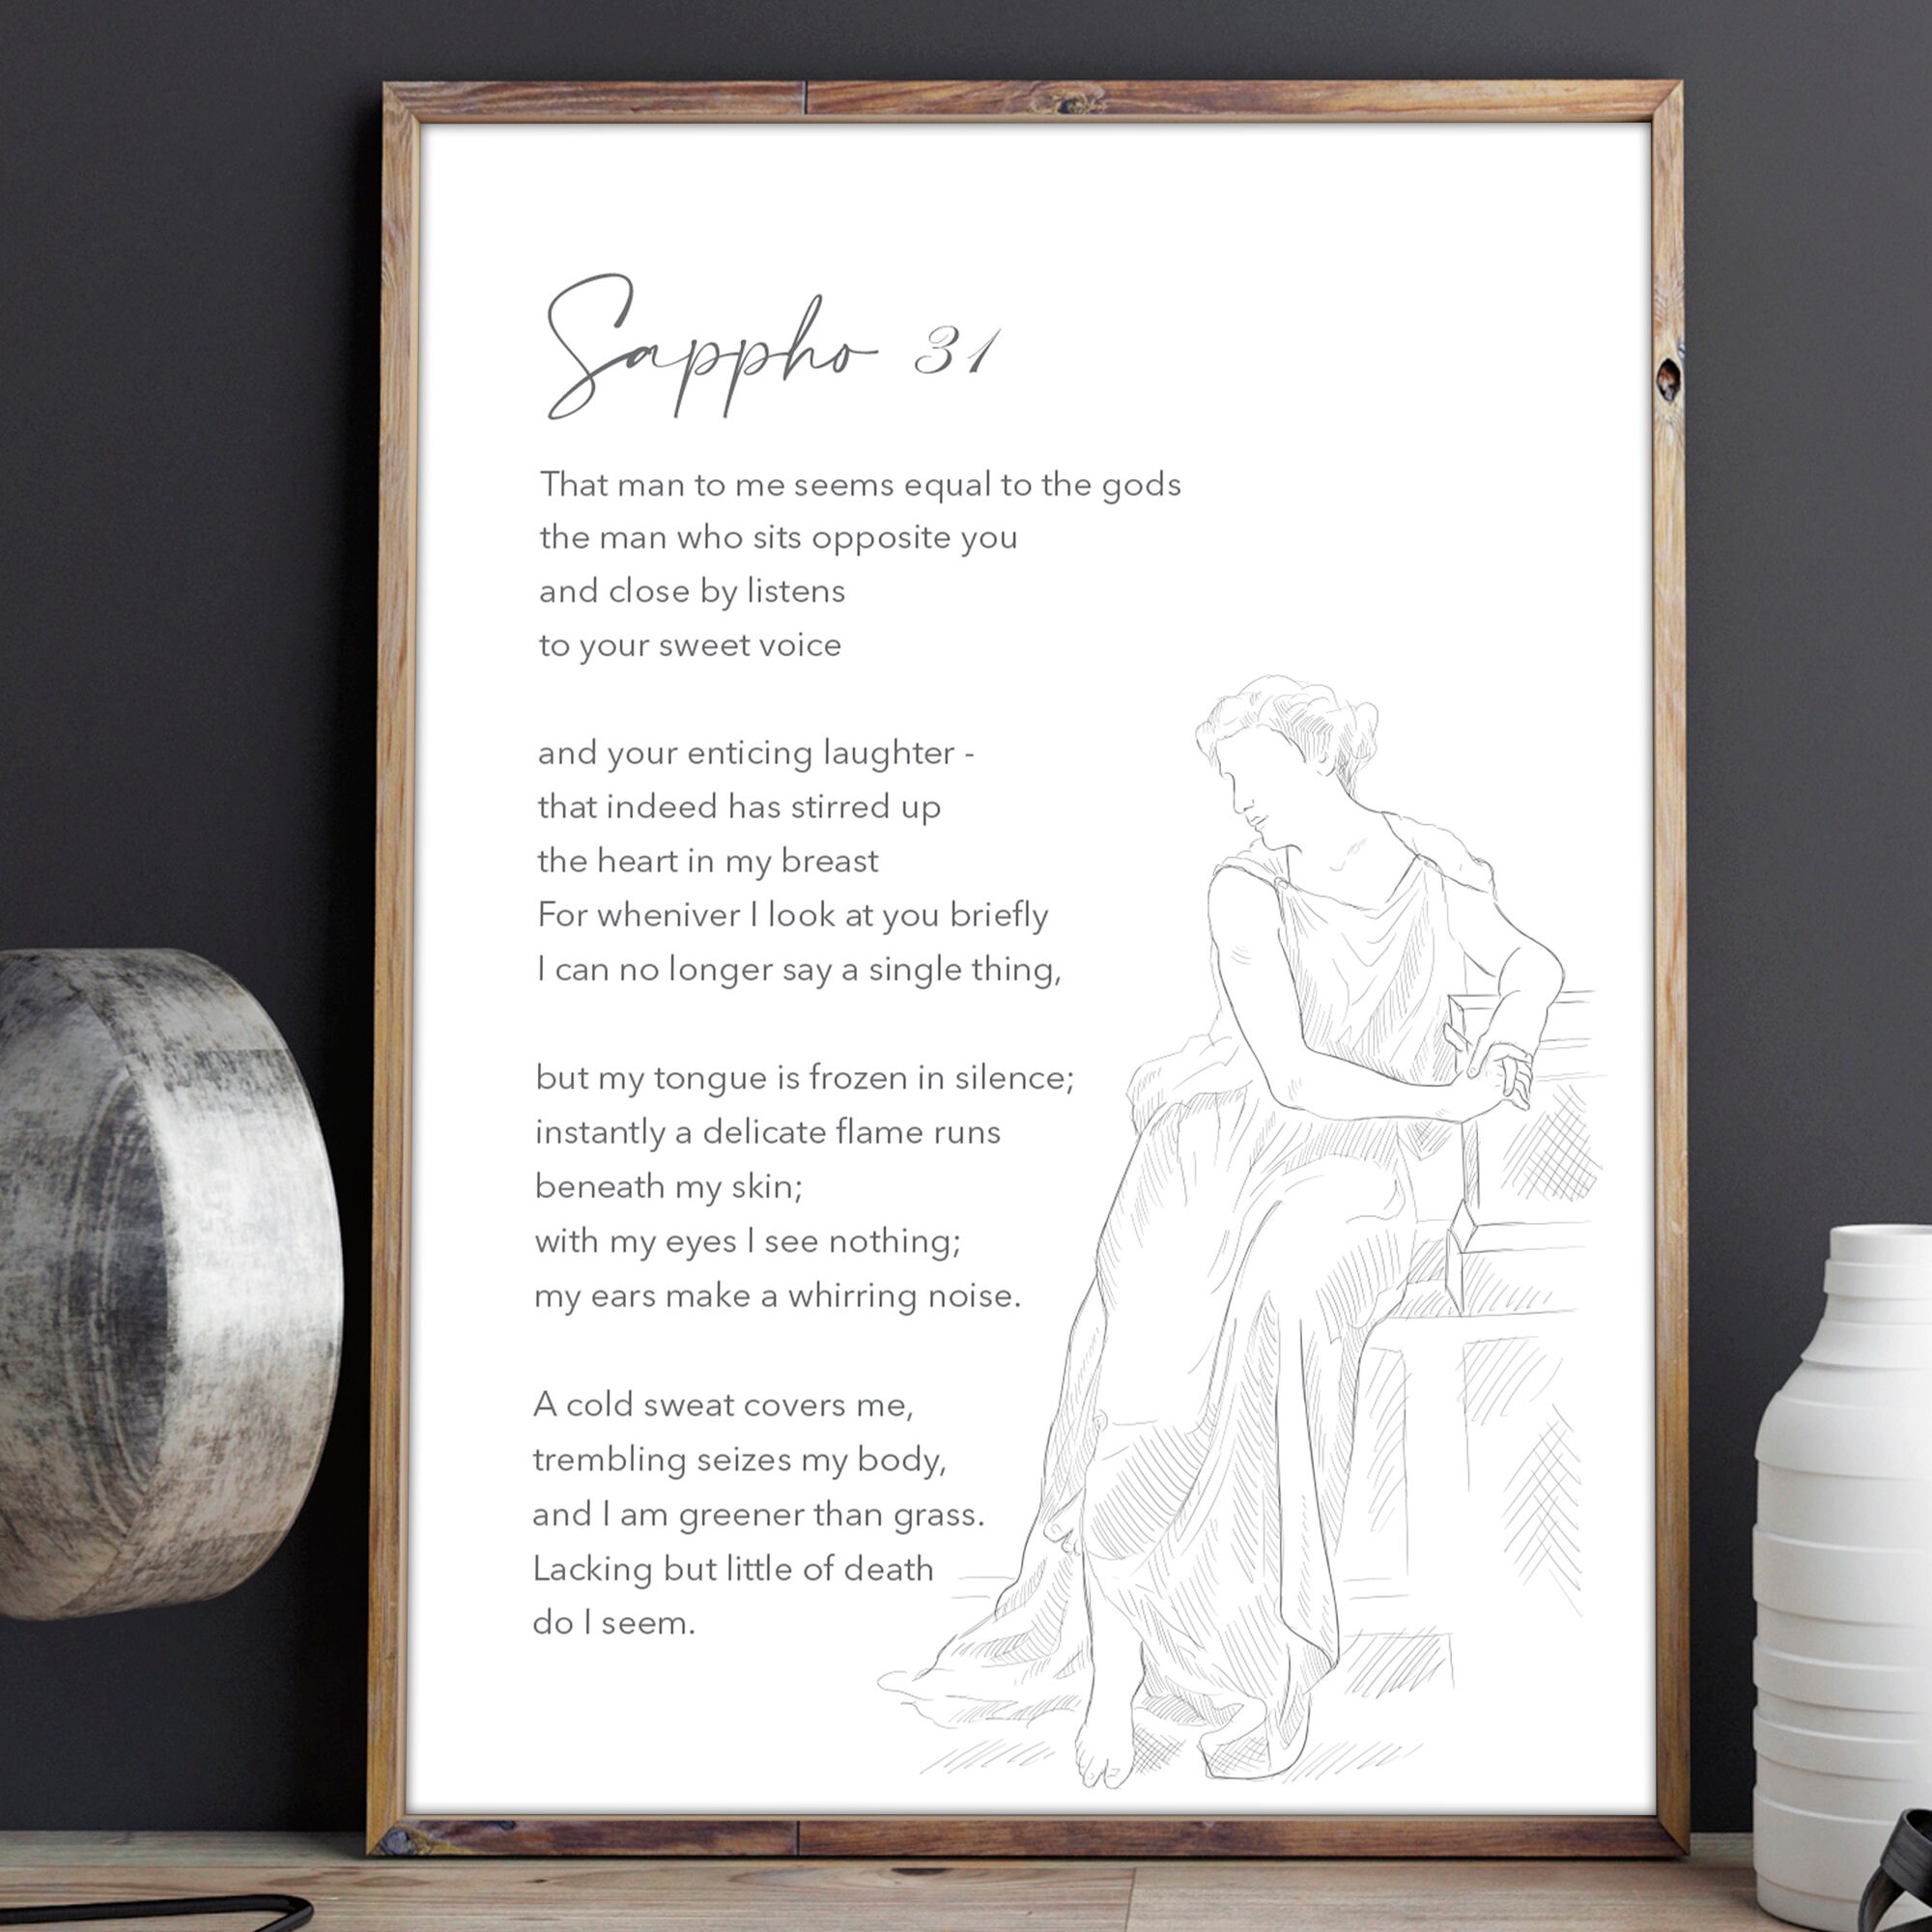 Sappho 31
That man to me seems equal to the gods
the man who sits opposite you
and close by listens
to your sweet voice
and your enticing laughter -
that indeed has stirred up
the heart in my breast
For wheniver I look at you briefly
I can no longer say a single thing,
but my tongue is frozen in silence;
instantly a delicate flame runs
beneath my skin;
with my eyes I see nothing;
my ears make a whirring noise.
A cold sweat covers me,
trembling seizes my body,
and I am greener than grass.
Lacking but little of death
do I seem.